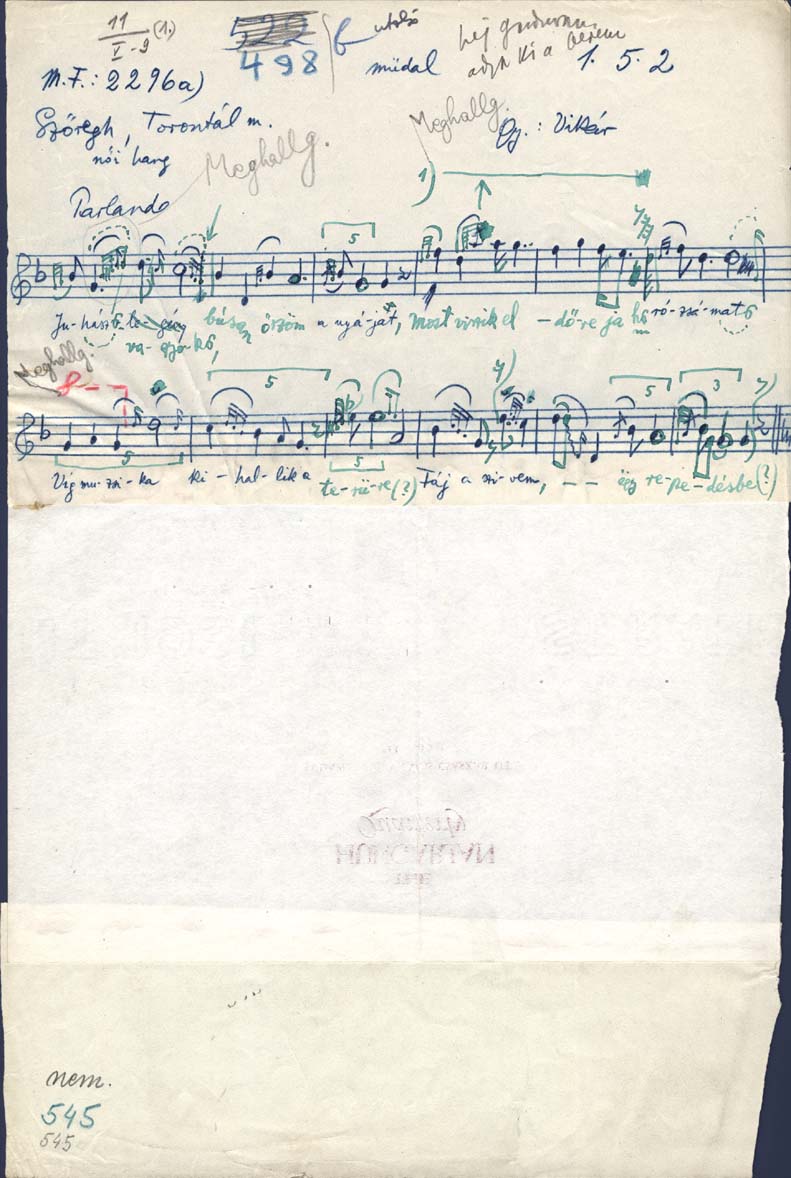 11
V-9 (1.)
522
498
utolsó
műdal
hej
adza ki a bérem
1. 5. 2
M.F.: 2296a)
Szőregh, Torontál m.
Gy.: Vikár
női hang
Meghallg.
Meghallg.
Parlando
1)
5
Ju-hász le-gény búsan őrzöm a nyá-ját, most viszik el - dő-re ja hű ró-zsá-mat
va-gyok,
Meghallg.
8
5
5
3
5
Víg mu-zsi-ka ki-hal-lik a te-rü-re (?) Fáj a szi-vem, - - így re-pe-désbe (?)
HUNGARIAN
nem.
545
545